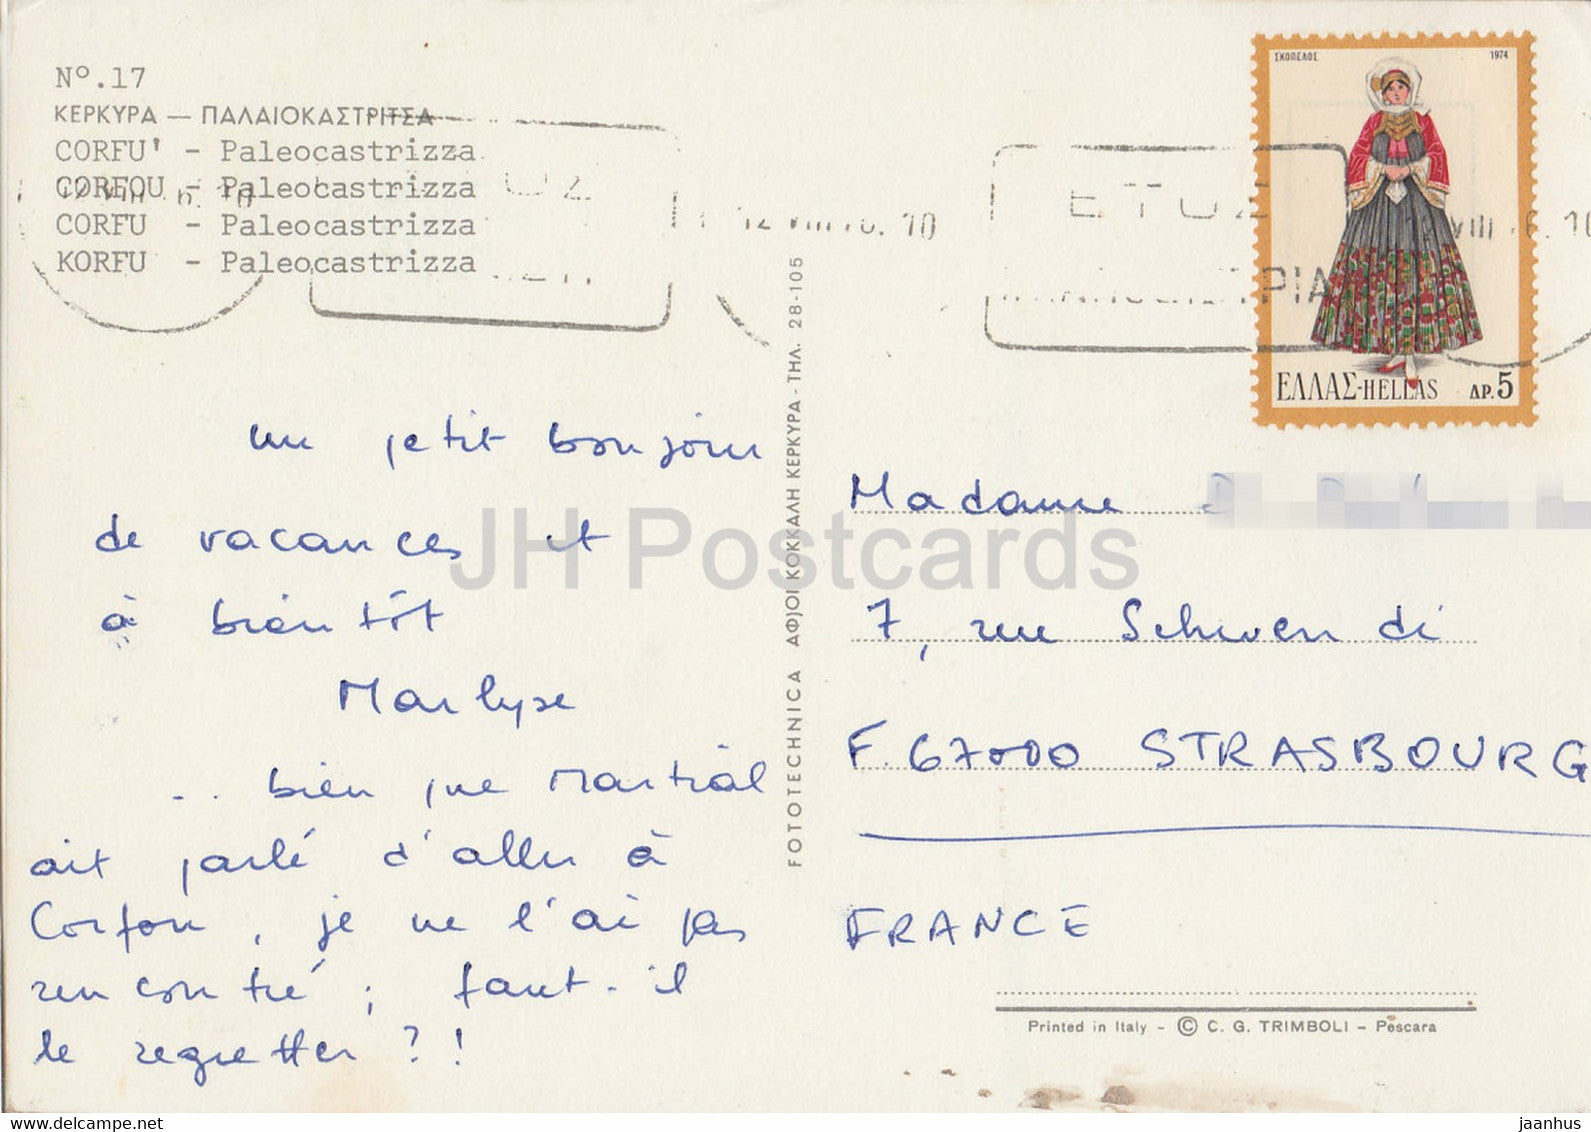 Nº.17
ΚΕΡΚΥΡΑ — ΠΑΛΑΙΟΚΑΣΤΡΙΤΣΑ
CORFU' - Paleocastrizza
CORFOU - Paleocastrizza
CORFU - Paleocastrizza
KORFU - Paleocastrizza
un petit bonjour
de vacances et
à bientôt
Marlyse
.. bien que Martial
ait parlé d'aller à
Corfou, je ne l'ai pas
rencontré ; faut-il
le regretter ?!
FOTOTECHNICA ΑΦ)ΟΙ ΚΟΚΚΑΛΗ ΚΕΡΚΥΡΑ - ΤΗΛ. 28-105
ΣΚΟΠΕΛΟΣ 1974
ΕΛΛΑΣ-HELLAS ΔΡ.5
ΕΤΟΣ
10
Madame
7, rue Schwendi
F. 67000 STRASBOURG
FRANCE
Printed in Italy - © C. G. TRIMBOLI - Pescara
JH Postcards
delcampe.net
jaanhus